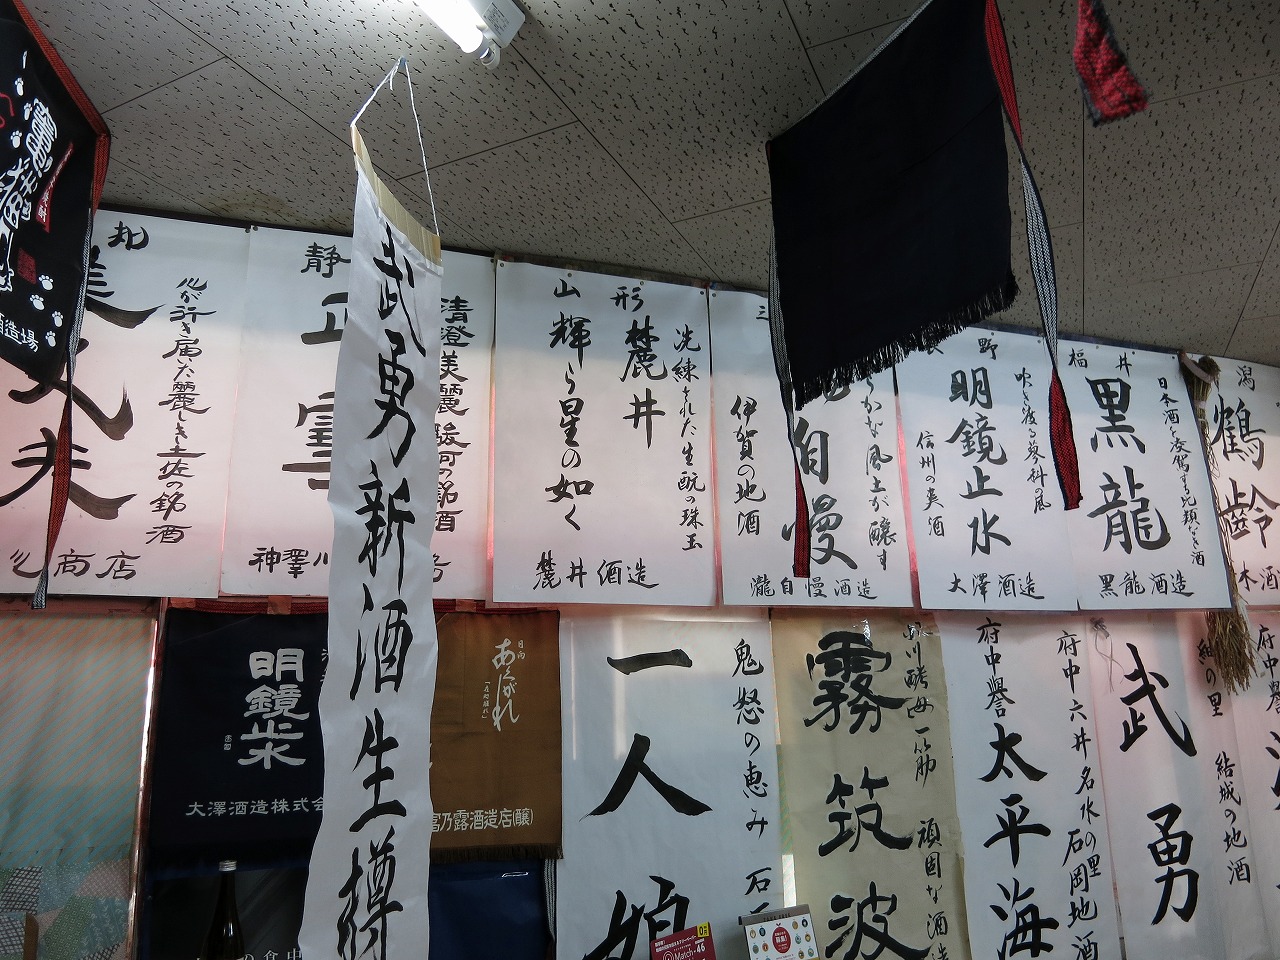 武勇新酒生樽
丸
心が行き届いた麗しき土佐の銘酒
商店
静
正
清澄美麗駿河の銘酒
神澤川
山形
洗練された生酛の珠玉
麓井
輝ら星の如く
麓井酒造
三
自慢
伊賀の地酒
瀧自慢酒造
野
吹き渡る蓼科の風
明鏡止水
信州の美酒
大澤酒造
福井
日本酒を凌駕する比類なき酒
黒龍
黒龍酒造
潟
鶴齢
明鏡止水
大澤酒造株式会
日向
あくがれ
富乃露酒造店(醸)
鬼怒の恵み 石
一人娘
酵母一筋 頑固な酒造
霧筑波
府中六井名水の里 石岡地酒
府中誉
太平海
紬の里 結城の地酒
武勇
府中誉